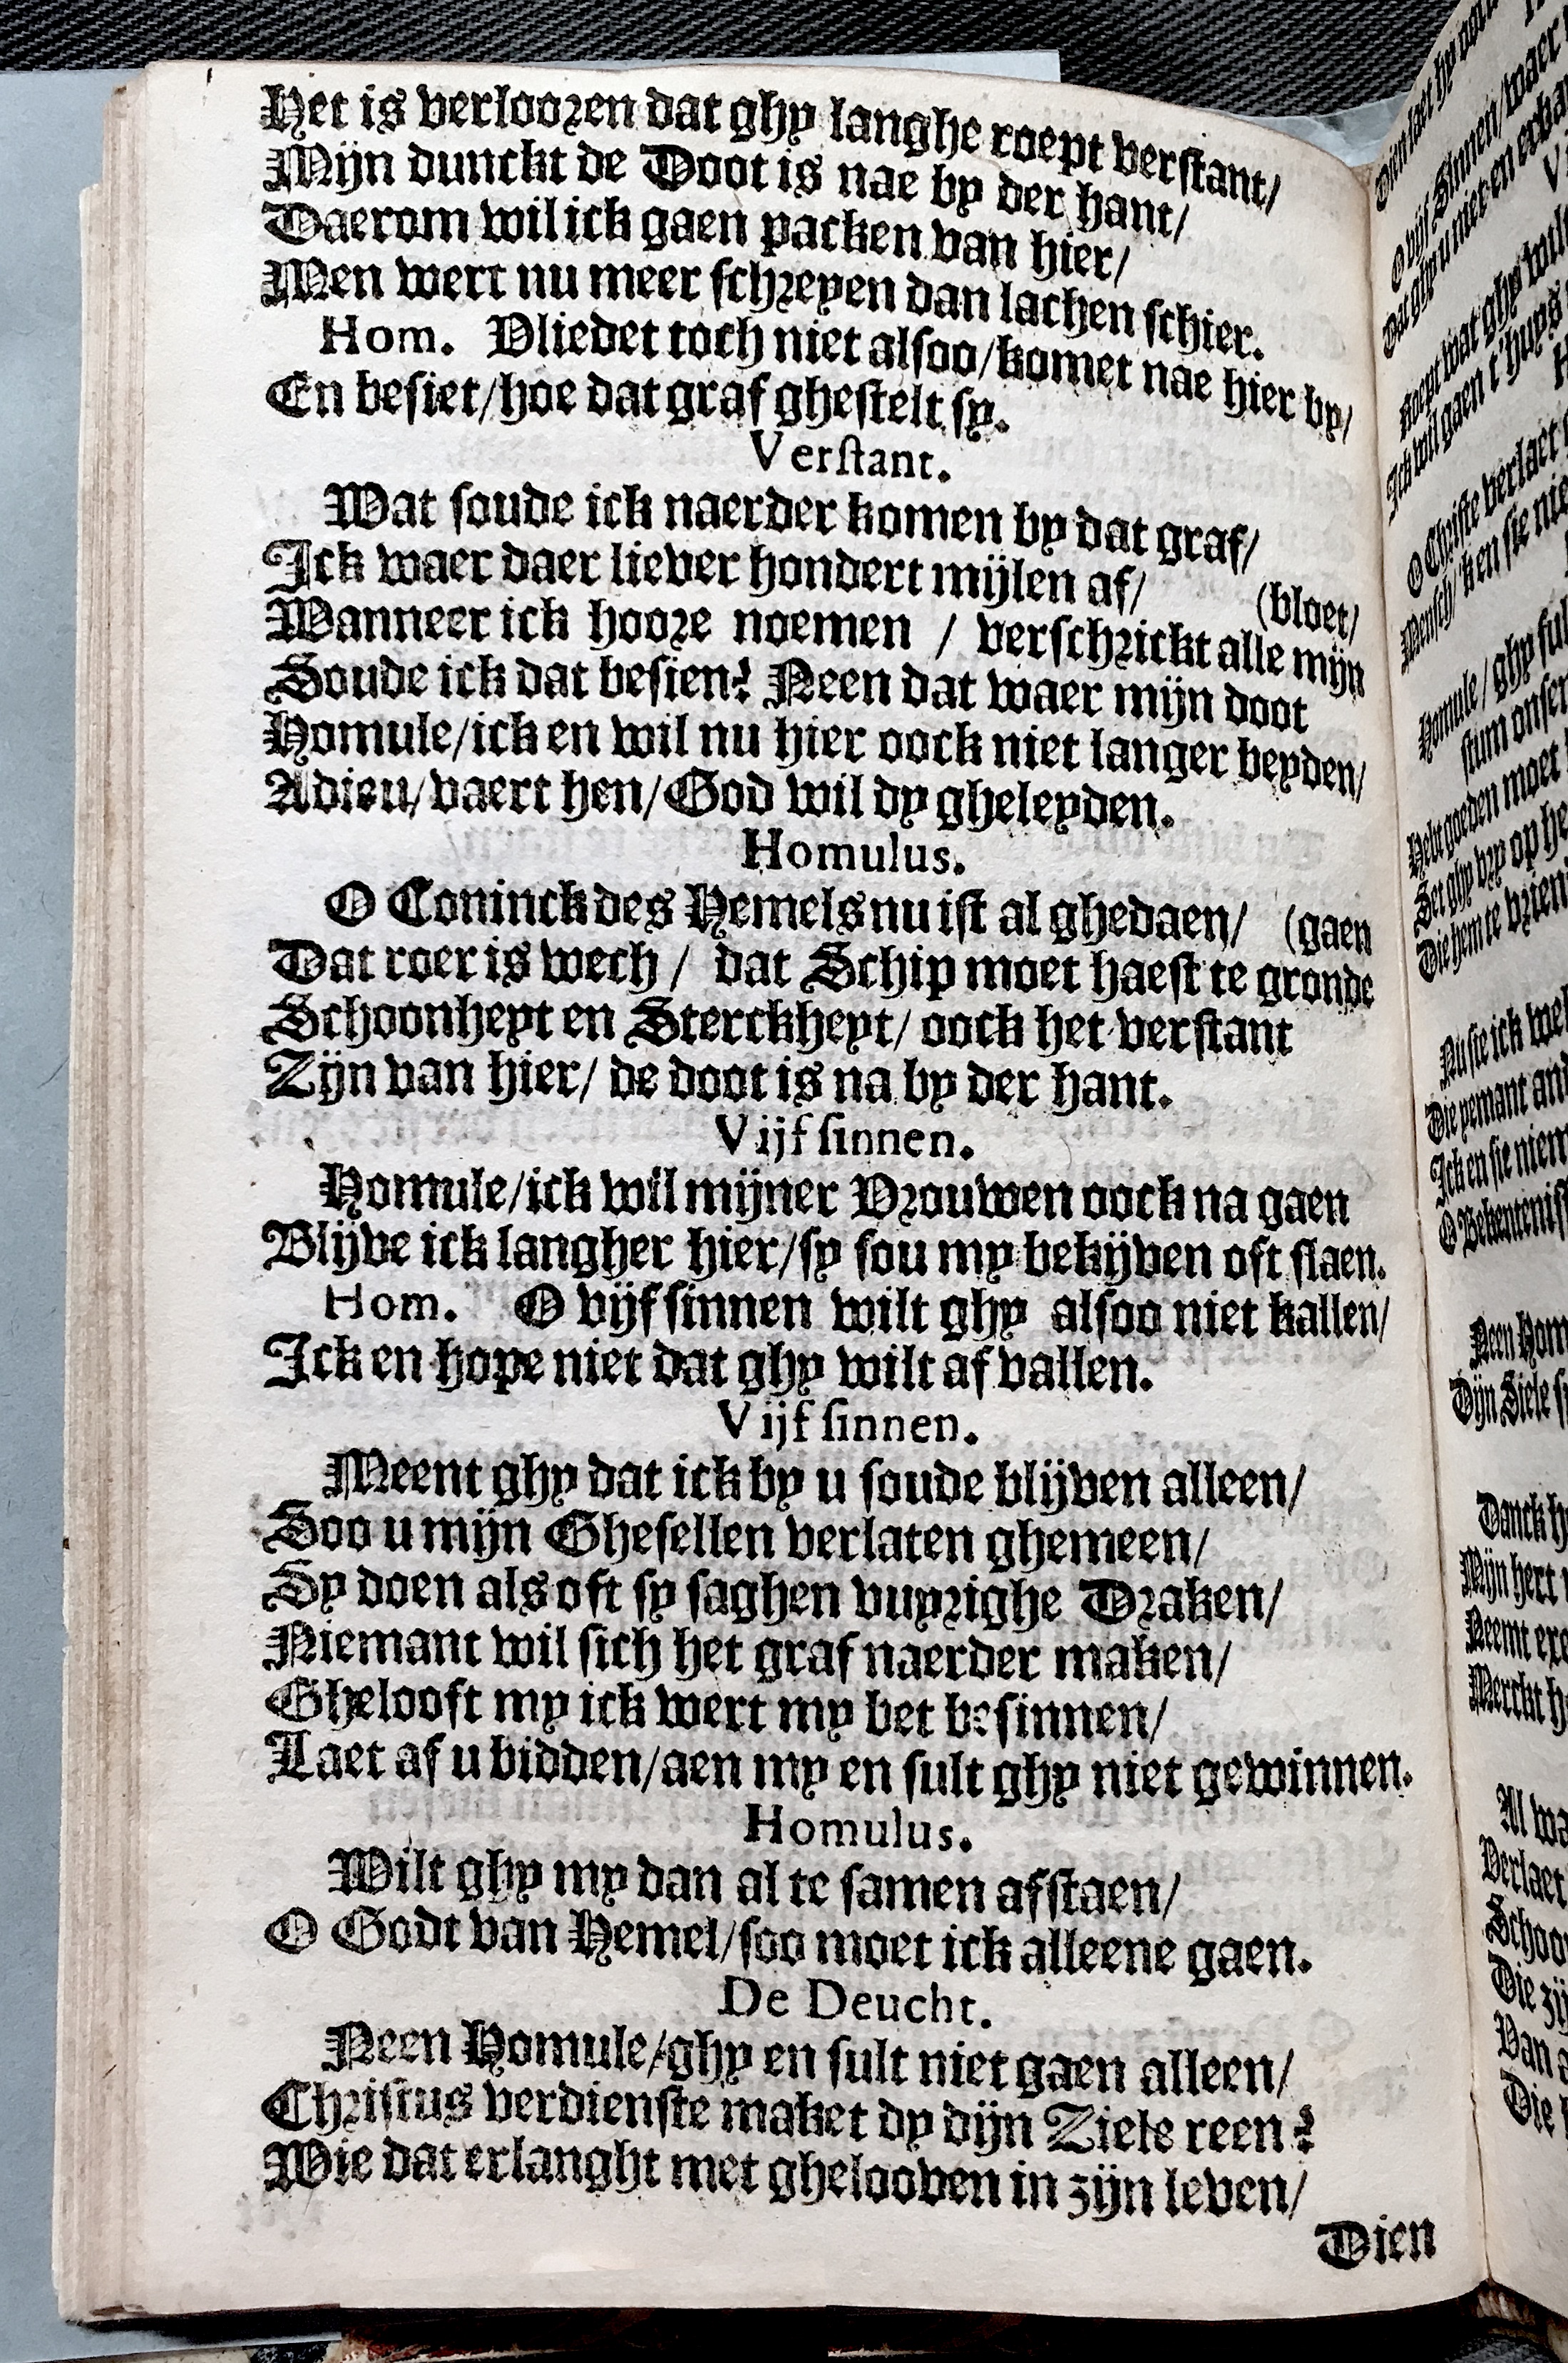 Het is verlooren dat ghy langhe roept verstant/
Mijn dunckt de Doot is nae by der hant/
Daerom wil ick gaen packen van hier/
Men wert nu meer schreyen dan lachen schier.
Hom. Vliedet toch niet alsoo/komet nae hier by/
En besiet/hoe dat graf ghestelt sy.
Verstant.
Wat soude ick naerder komen by dat graf/
Ick waer daer liever hondert mijlen af/
(bloet/
Wanneer ick hoore noemen / verschrickt alle mijn
Soude ick dat besien? Neen dat waer mijn doot
Homule/ick en wil nu hier oock niet langer beyden/
Adieu/vaert hen/God wil dy gheleyden.
Homulus.
O Coninck des Hemels nu ist al ghedaen/ (gaen
Dat roer is wech / dat Schip moet haest te gronde
Schoonheyt en Sterckheyt/ oock het verstant
Zijn van hier/ de doot is na by der hant.
Vijf sinnen.
Homule/ick wil mijner Vrouwen oock na gaen
Blijve ick langher hier/sy sou my bekijven oft slaen.
Hom. O vijf sinnen wilt ghy alsoo niet kallen/
Ick en hope niet dat ghy wilt af vallen.
Vijf sinnen.
Meent ghy dat ick by u soude blijven alleen/
Soo u mijn Ghesellen verlaten ghemeen/
Sy doen als oft sy saghen vuyrighe Draken/
Niemant wil sich het graf naerder maken/
Ghelooft my ick wert my bet besinnen/
Laet af u bidden/aen my en sult ghy niet gewinnen.
Homulus.
Wilt ghy my dan al te samen afstaen/
O Godt van Hemel/soo moet ick alleene gaen.
De Deucht.
Neen Homule/ghy en sult niet gaen alleen/
Christus verdienste maket dy dijn Ziele reen?
Wie dat erlanght met ghelooven in zijn leven/
Dien